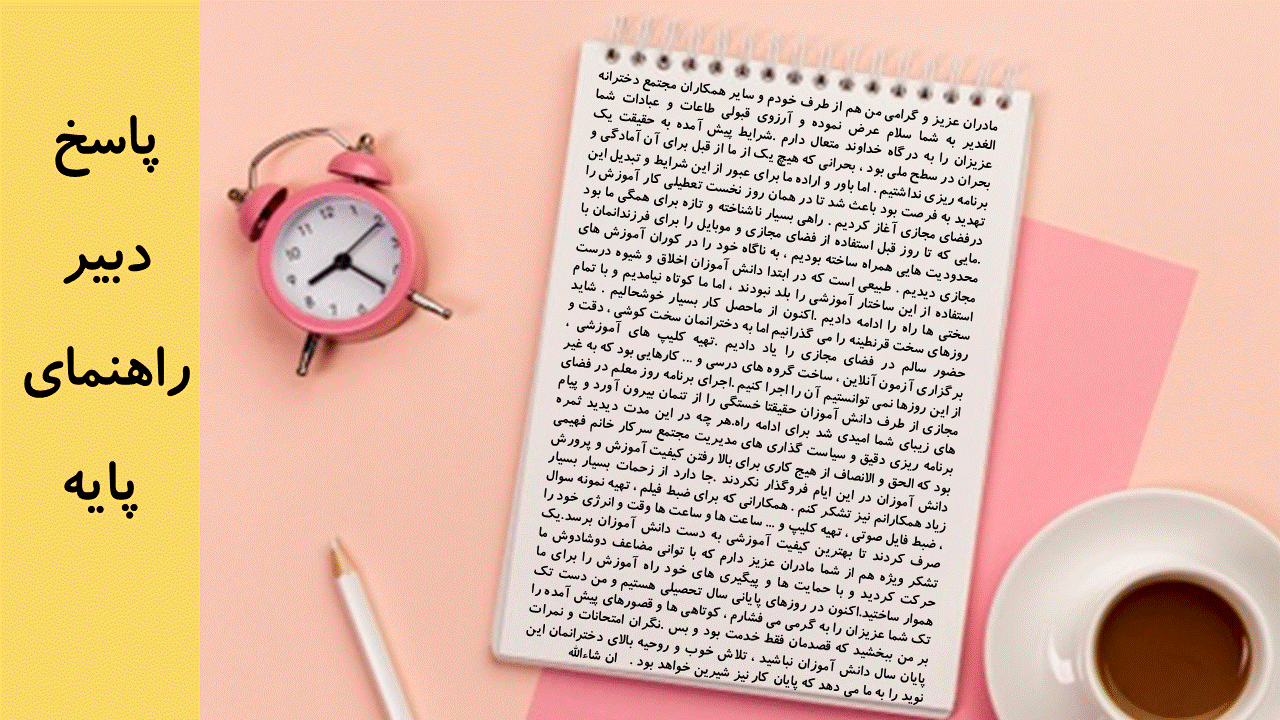 پاسخ
دبیر
راهنمای
پایه
مادران عزیز و گرامی من هم از طرف خودم و سایر همکاران مجتمع دخترانه
الغدیر به شما سلام عرض نموده و آرزوی قبولی طاعات و عبادات شما
عزیزان را به درگاه خداوند متعال دارم .شرایط پیش آمده به حقیقت یک
بحران در سطح ملی بود ، بحرانی که هیچ یک از ما از قبل برای آن آمادگی و
برنامه ریزی نداشتیم . اما باور و اراده ما برای عبور از این شرایط و تبدیل این
تهدید به فرصت بود باعث شد تا در همان روز نخست تعطیلی کار آموزش را
درفضای مجازی آغاز کردیم . راهی بسیار ناشناخته و تازه برای همگی ما بود
.مایی که تا روز قبل استفاده از فضای مجازی و موبایل را برای فرزندانمان با
محدودیت هایی همراه ساخته بودیم ، به ناگاه خود را در کوران آموزش های
مجازی دیدیم . طبیعی است که در ابتدا دانش آموزان اخلاق و شیوه درست
استفاده از این ساختار آموزشی را بلد نبودند ، اما ما کوتاه نیامدیم و با تمام
سختی ها راه را ادامه دادیم .اکنون از ماحصل کار بسیار خوشحالیم . شاید
روزهای سخت قرنطینه را می گذرانیم اما به دخترانمان سخت کوشی ، دقت و
حضور سالم در فضای مجازی را یاد دادیم .تهیه کلیپ های آموزشی ،
برگزاری آزمون آنلاین ، ساخت گروه های درسی و ... کارهایی بود که به غیر
از این روزها نمی توانستیم آن را اجرا کنیم .اجرای برنامه روز معلم در فضای
مجازی از طرف دانش آموزان حقیقتا خستگی را از تنمان بیرون آورد و پیام
های زیبای شما امیدی شد برای ادامه راه.هر چه در این مدت دیدید ثمره
برنامه ریزی دقیق و سیاست گذاری های مدیریت مجتمع سرکار خانم فهیمی
بود که الحق و الانصاف از هیچ کاری برای بالا رفتن کیفیت آموزش و پرورش
دانش آموزان در این ایام فروگذار نکردند .جا دارد از زحمات بسیار بسیار
زیاد همکارانم نیز تشکر کنم . همکارانی که برای ضبط فیلم ، تهیه نمونه سوال
، ضبط فایل صوتی ، تهیه کلیپ و ... ساعت ها و ساعت ها وقت و انرژی خود را
صرف کردند تا بهترین کیفیت آموزشی به دست دانش آموزان برسد.یک
تشکر ویژه هم از شما مادران عزیز دارم که با توانی مضاعف دوشادوش ما
حرکت کردید و با حمایت ها و پیگیری های خود راه آموزش را برای ما
هموار ساختید.اکنون در روزهای پایانی سال تحصیلی هستیم و من دست تک
تک شما عزیزان را به گرمی می فشارم ، کوتاهی ها و قصورهای پیش آمده را
بر من ببخشید که قصدمان فقط خدمت بود و بس .نگران امتحانات و نمرات
پایان سال دانش آموزان نباشید ، تلاش خوب و روحیه بالای دخترانمان این
نوید را به ما می دهد که پایان کار نیز شیرین خواهد بود . ان شاءالله